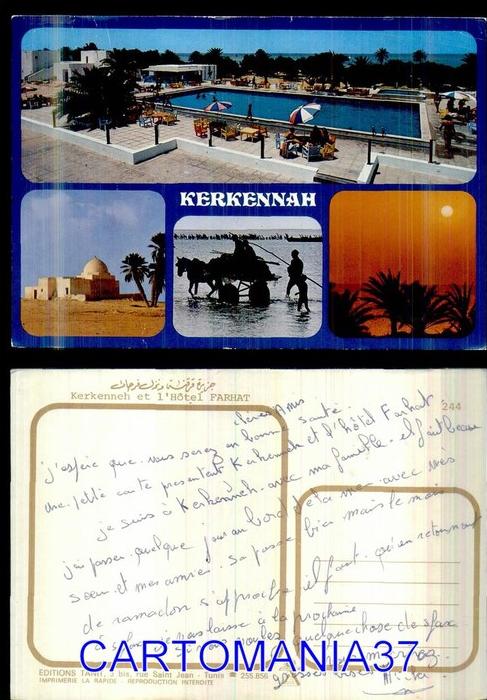 KERKENNAH
جزيرة قرقنة ونزل فرحات
Kerkenneh et l'Hôtel FARHAT
244
chères Amis
j'espère que vous serez en bonne santé.
une petite carte présentant Kerkenneh et l'hôtel Farhat
je suis à Kerkenneh avec ma famille. il fait beau
j'ai passer quelque jour au bord de la mer avec mes
sœur et mes amies. sa passe bien mais le mois
de ramadon s'approche il faut qu'en retournant
je vous laisse à la prochaine
si vous voulez quelque chose de sfax
grosses bises
EDITIONS TANIT, 3 bis, rue Saint Jean - Tunis ★ 255.856
IMPRIMERIE LA RAPIDE - REPRODUCTION INTERDITE
CARTOMANIA37